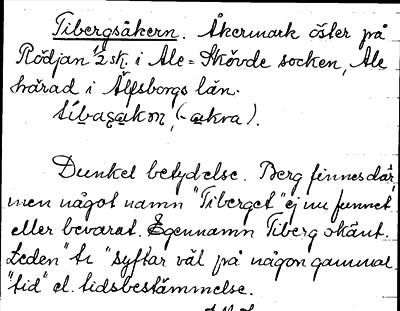 Tibergsåkern. Åkermark öster på
Rödjan 1/2 sk. i Ale-Skövde socken, Ale
härad i Älfsborgs län.
Dunkel betydelse. Berg finnes där,
men något namn "Tiberget" ej nu funnet
eller bevarat. Egennamn Tiberg okänt.
Leden "ti" syftar väl på någon gammal
"tid" el. tidsbestämmelse.